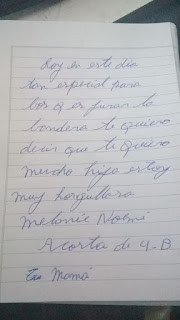 Hoy en este día
tan especial para
los q es jurar la
bandera te quiero
decir que te quiero
mucho hija estoy
muy horgullosa
Melanie Noemi
Acosta de 4-B
Mamá